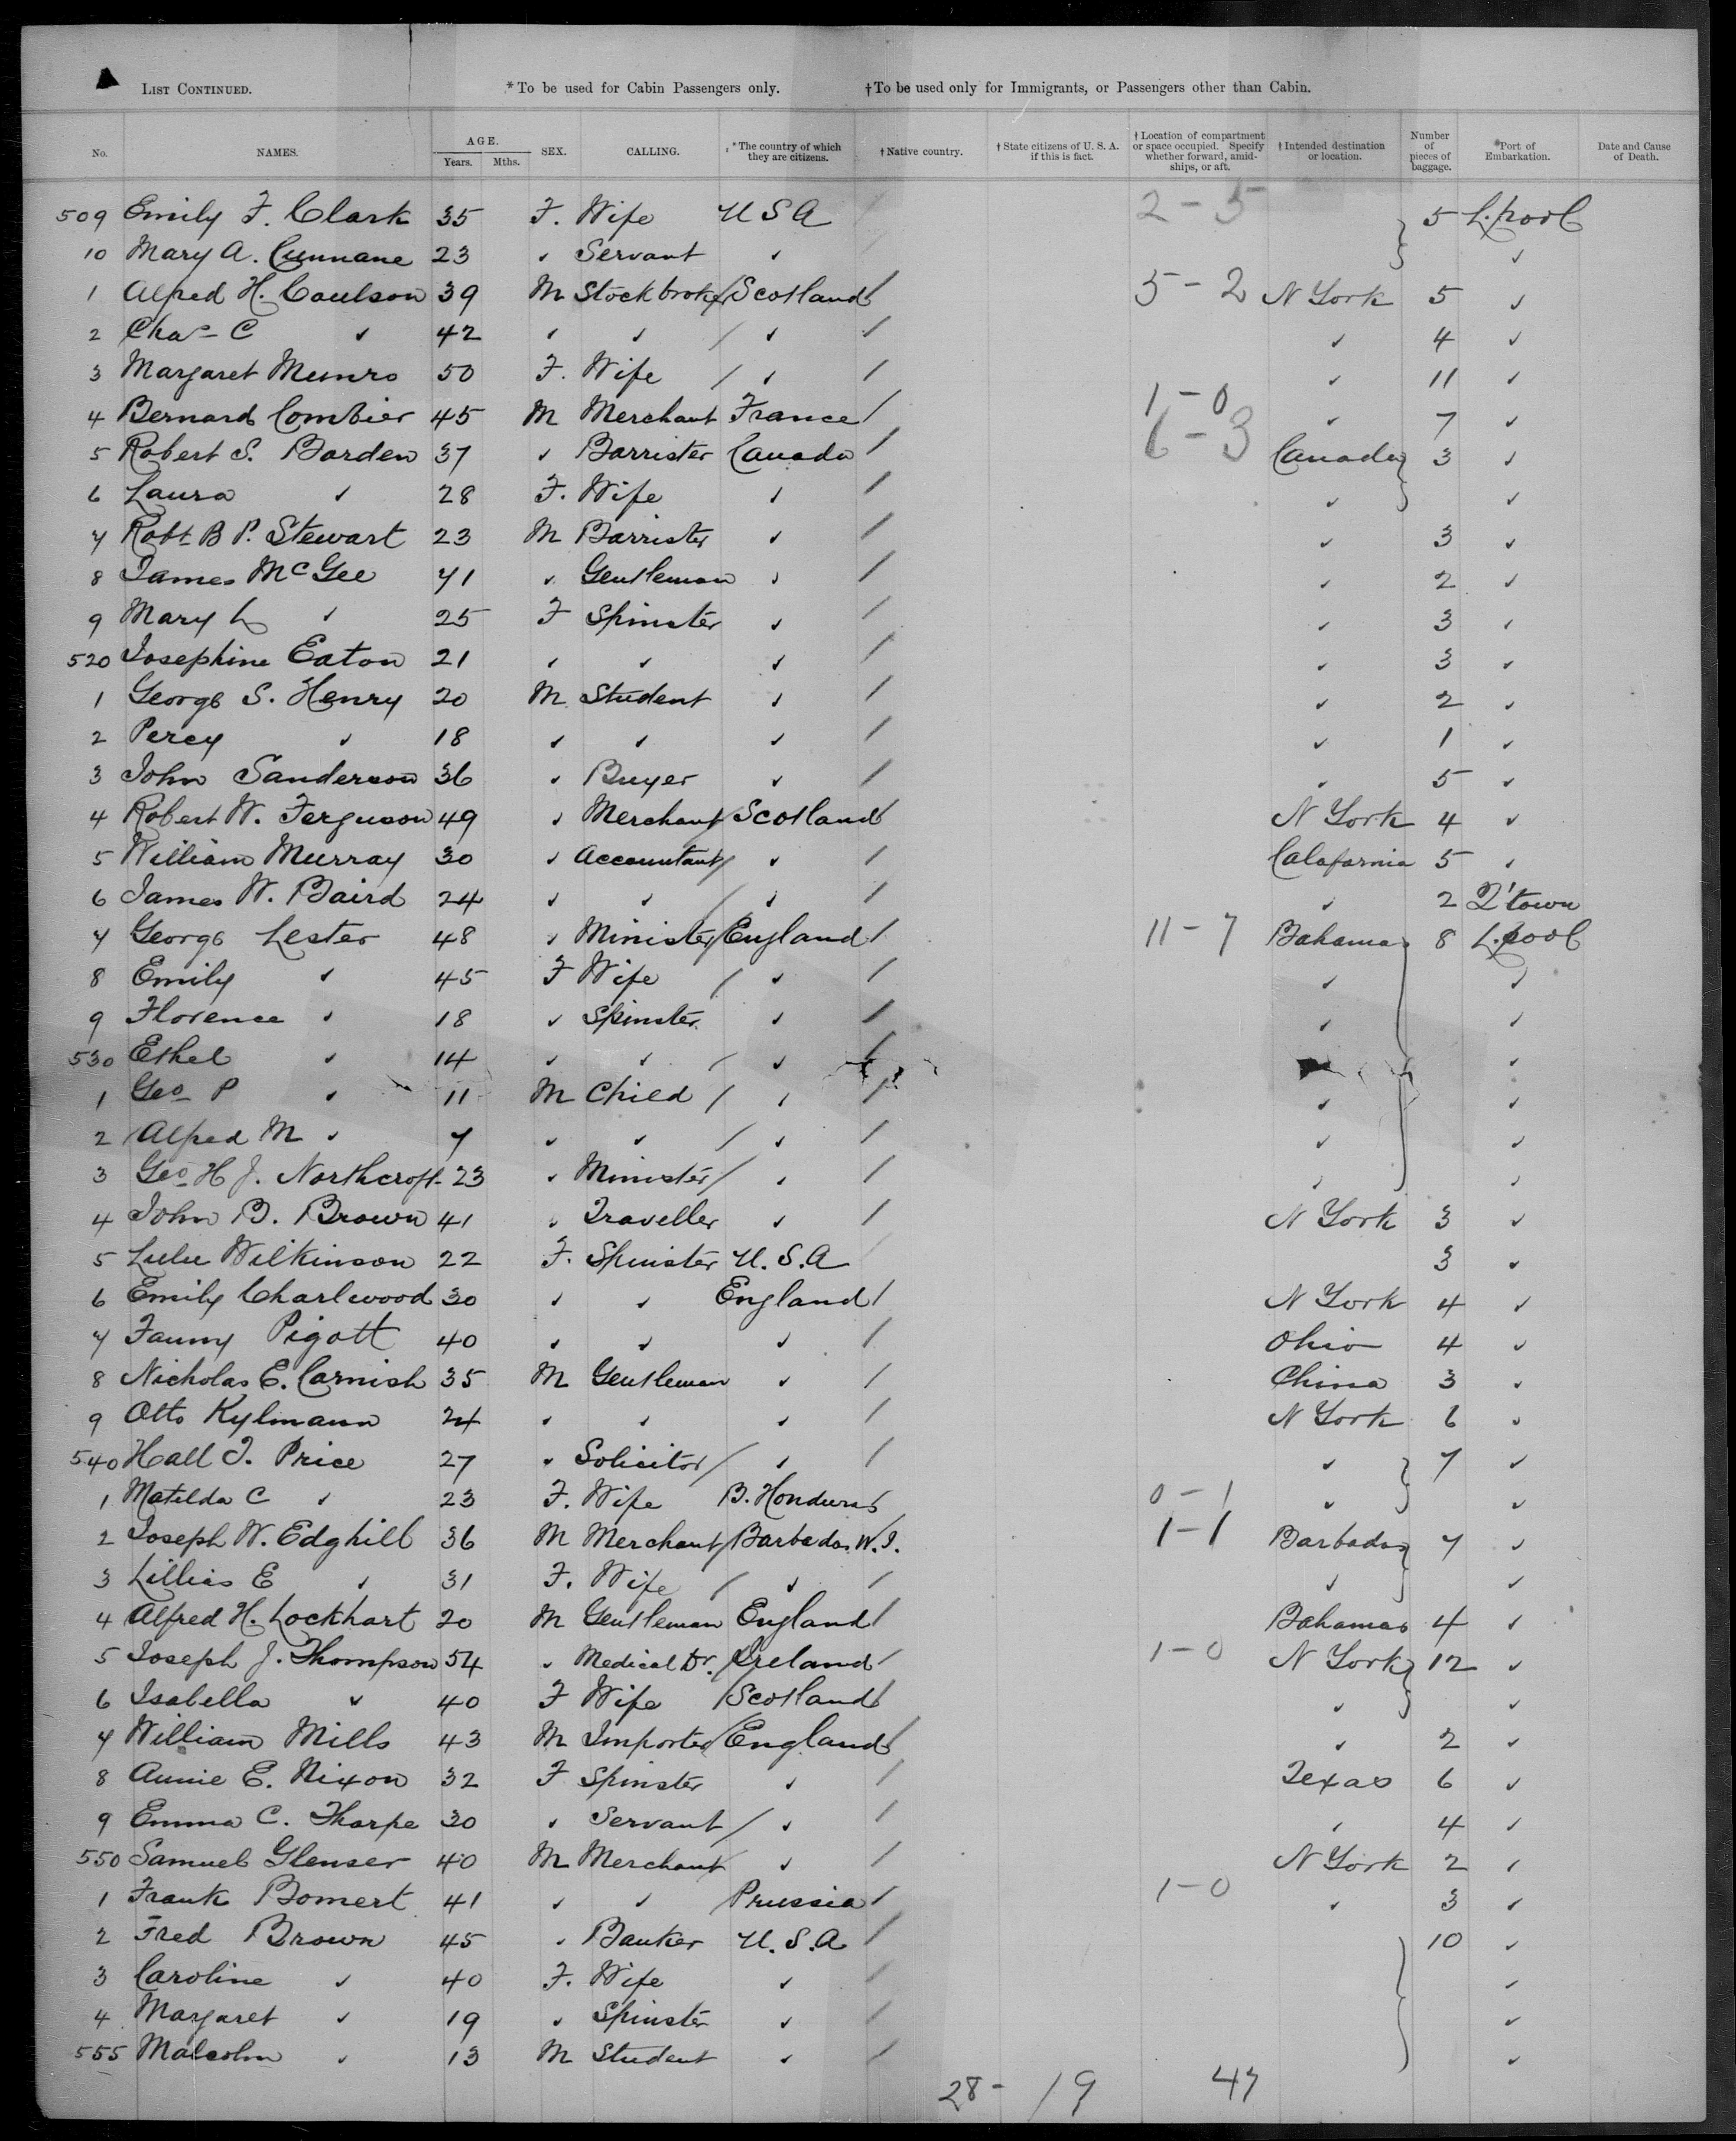 LIST CONTINUED. *To be used for Cabin Passengers only. †To be used only for Immigrants, or Passengers other than Cabin.
No. NAMES. AGE. Years. Mths. SEX. CALLING. *The country of which they are citizens. †Native country. †State citizens of U. S. A. if this is fact. †Location of compartment or space occupied. Specify whether forward, amidships, or aft. †Intended destination or location. Number of pieces of baggage. *Port of Embarkation. Date and Cause of Death.
509 Emily F. Clark 35 F. Wife U S A 2-5 5 L.pool
10 Mary A. Cunnane 23 ✓ Servant ✓ ✓
1 Alfred H. Coulson 39 M Stockbroker / Scotland / 5-2 N York 5 ✓
2 Chas C ✓ 42 ✓ ✓ / ✓ / ✓ 4 ✓
3 Margaret Munro 50 F. Wife / ✓ / ✓ 11 ✓
4 Bernard Combier 45 M Merchant France / 1-0 ✓ 7 ✓
5 Robert S. Borden 37 ✓ Barrister Canada / 6-3 Canada 3 ✓
6 Laura ✓ 28 F. Wife ✓ / ✓ ✓
7 Robt B P. Stewart 23 M Barrister ✓ / ✓ 3 ✓
8 James McGee 71 ✓ Gentleman ✓ / ✓ 2 ✓
9 Mary L ✓ 25 F Spinster ✓ / ✓ 3 ✓
520 Josephine Eaton 21 ✓ ✓ ✓ / ✓ 3 ✓
1 George S. Henry 20 M Student ✓ / ✓ 2 ✓
2 Percy ✓ 18 ✓ ✓ ✓ / ✓ 1 ✓
3 John Sanderson 36 ✓ Buyer ✓ / ✓ 5 ✓
4 Robert W. Ferguson 49 ✓ Merchant / Scotland / N York 4 ✓
5 William Murray 30 ✓ Accountant / ✓ / Calafornia 5 ✓
6 James W. Baird 24 ✓ ✓ / ✓ / ✓ 2 Q'town
7 George Lester 48 ✓ Minister / England / 11-7 Bahamas 8 L.pool
8 Emily ✓ 45 F Wife / ✓ / ✓ ✓
9 Florence ✓ 18 ✓ Spinster ✓ / ✓ ✓
530 Ethel ✓ 14 ✓ ✓ / ✓ / ✓
1 Geo P ✓ 11 M Child / ✓ / ✓ ✓
2 Alfred M ✓ 7 ✓ ✓ / ✓ / ✓ ✓
3 Geo H J. Northcroft 23 ✓ Minister / ✓ / ✓ ✓
4 John B. Brown 41 ✓ Traveller ✓ / N York 3 ✓
5 Lulu Wilkinson 22 F. Spinster U.S.A 3 ✓
6 Emily Charlwood 30 ✓ ✓ England / N York 4 ✓
7 Fanny Pigott 40 ✓ ✓ ✓ / Ohio 4 ✓
8 Nicholas E. Cornish 35 M Gentleman ✓ / China 3 ✓
9 Otto Kylmann 24 ✓ ✓ ✓ / N York 6 ✓
540 Hall J. Price 27 ✓ Solicitor / ✓ / ✓ 7 ✓
1 Matilda C ✓ 23 F. Wife B. Honduras 0-1 ✓ ✓
2 Joseph W. Edghill 36 M Merchant / Barbados W.I. 1-1 Barbados 7 ✓
3 Lillias E ✓ 31 F. Wife / ✓ / ✓ ✓
4 Alfred H. Lockhart 20 M Gentleman England / Bahamas 4 ✓
5 Joseph J. Thompson 54 ✓ Medical Dr. / Ireland / 1-0 N York 12 ✓
6 Isabella ✓ 40 F Wife / Scotland / ✓ ✓
7 William Mills 43 M Importer / England / ✓ 2 ✓
8 Annie E. Nixon 32 F Spinster ✓ / Texas 6 ✓
9 Emma C. Tharpe 30 ✓ Servant / ✓ / ✓ 4 ✓
550 Samuel Glenser 40 M Merchant / ✓ / N York 2 ✓
1 Frank Bomert 41 ✓ ✓ Prussia / 1-0 ✓ 3 ✓
2 Fred Brown 45 ✓ Banker U.S.A / 10 ✓
3 Caroline ✓ 40 F. Wife ✓ / ✓
4 Margaret ✓ 19 ✓ Spinster ✓ / ✓
555 Malcolm ✓ 13 M Student ✓ / ✓
28 - 19 47